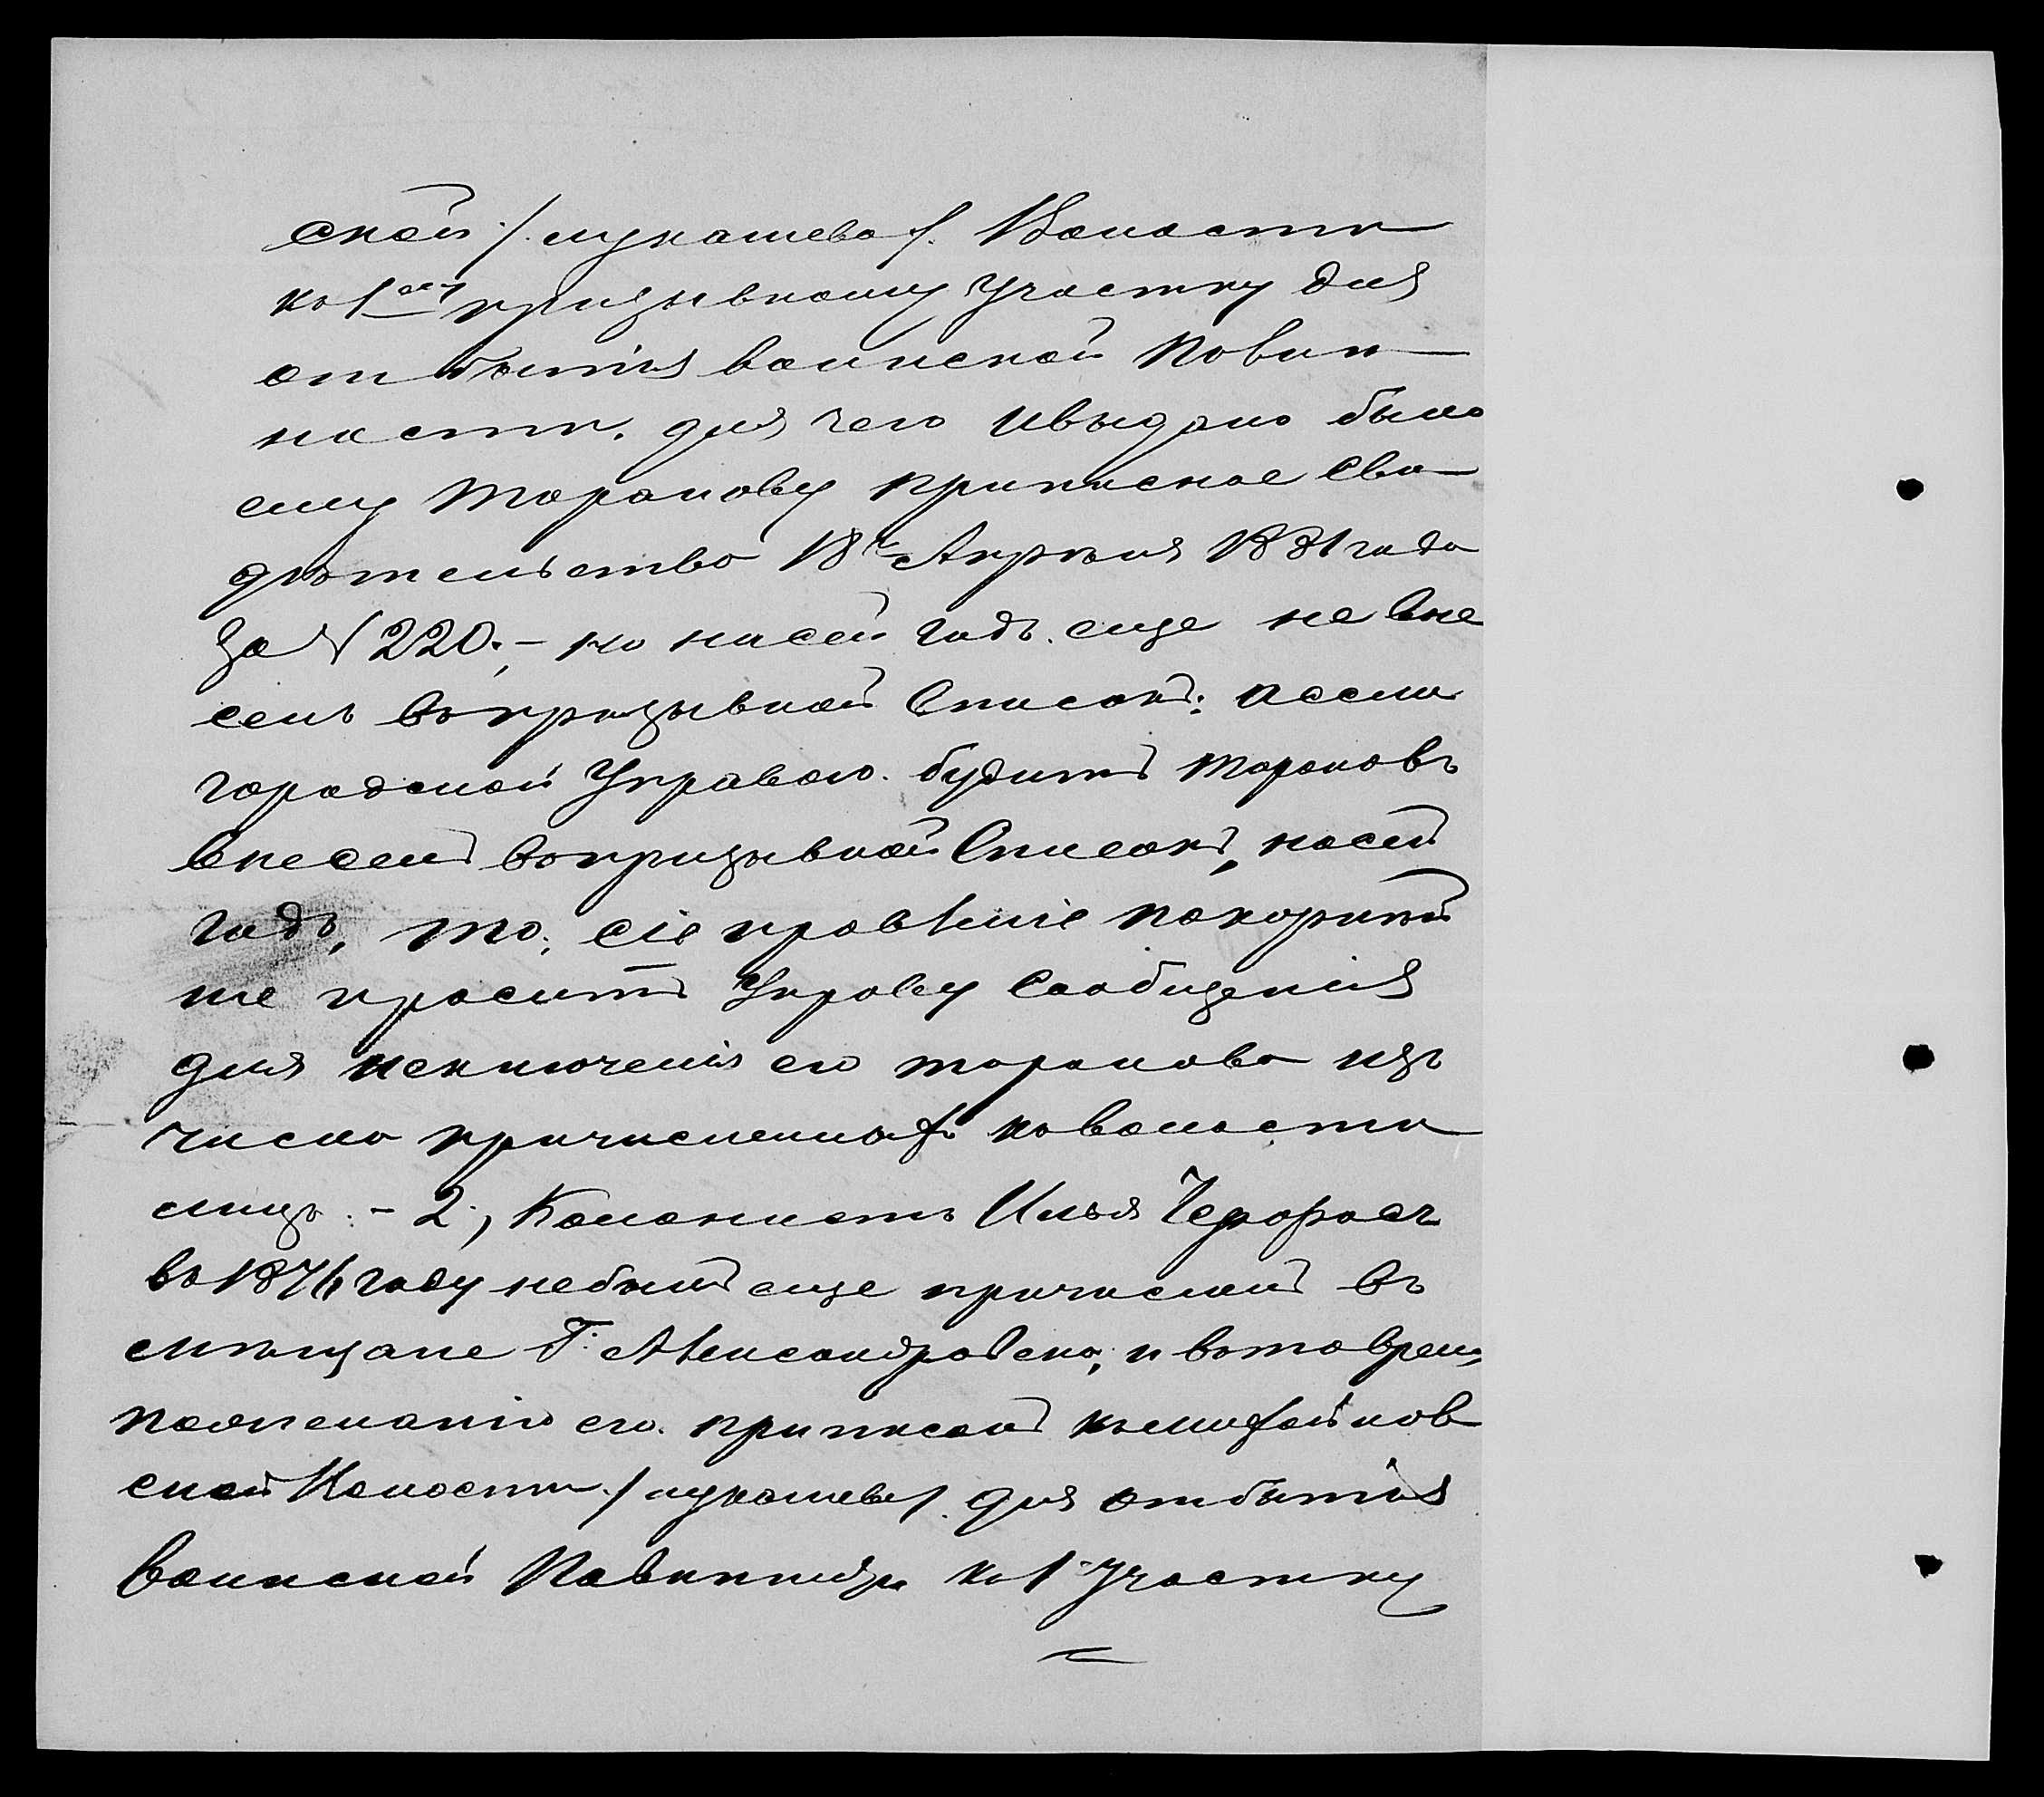 ской /. лукашева /. Волости
къ 1ому призывному участку для
отбытiя воинской повин
ности. для чего и выдано было
ему Таранову приписное сви
дѣтельство 18го Апрѣля 1881 года
за № 220. – но на сей годъ. еще не вне
сенъ въ призывной Списокъ: и если
городской Управою. будитъ Тарановъ
внесенъ въ призывной Списокъ, на сей
годъ, то, сiе правленiе покорнѣй
ше проситъ Управу Сообщенiя
для исключенiя его таранова изъ
числа причисленныхъ къ волости
лицъ. – 2., Колонистъ Илья
въ 1876 году не былъ еще причисленъ въ
мѣщане Г. Александровска, и въ то время
по желанiю его. приписанъ къ
ской Волости /. лукашева /. для отбытiя
воинской Повинности къ 1 Участку